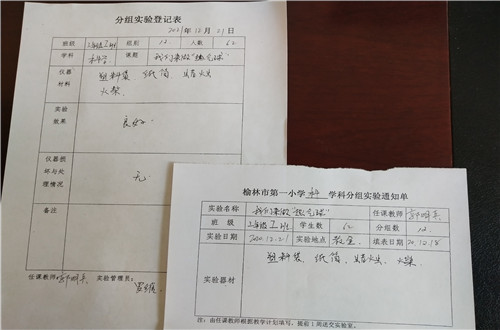 分组实验登记表
2021年12月21日
班级 组别 12 人数 62
学科 科学 课题 我们来做"热气球"
仪器材料 塑料袋、纸筒、蜡烛、火柴、
实验效果 良好
仪器损坏与处理情况 无
备注
任课教师: 实验管理员:
榆林市第一小学 科 学科分组实验通知单
实验名称 我们来做"热气球" 任课教师
班级 学生数 62 分组数 12
实验日期 实验地点 教室 填表日期
实验器材 塑料袋、纸筒、蜡烛、火柴
注:由任课教师根据教学计划填写,提前1周送交实验室。